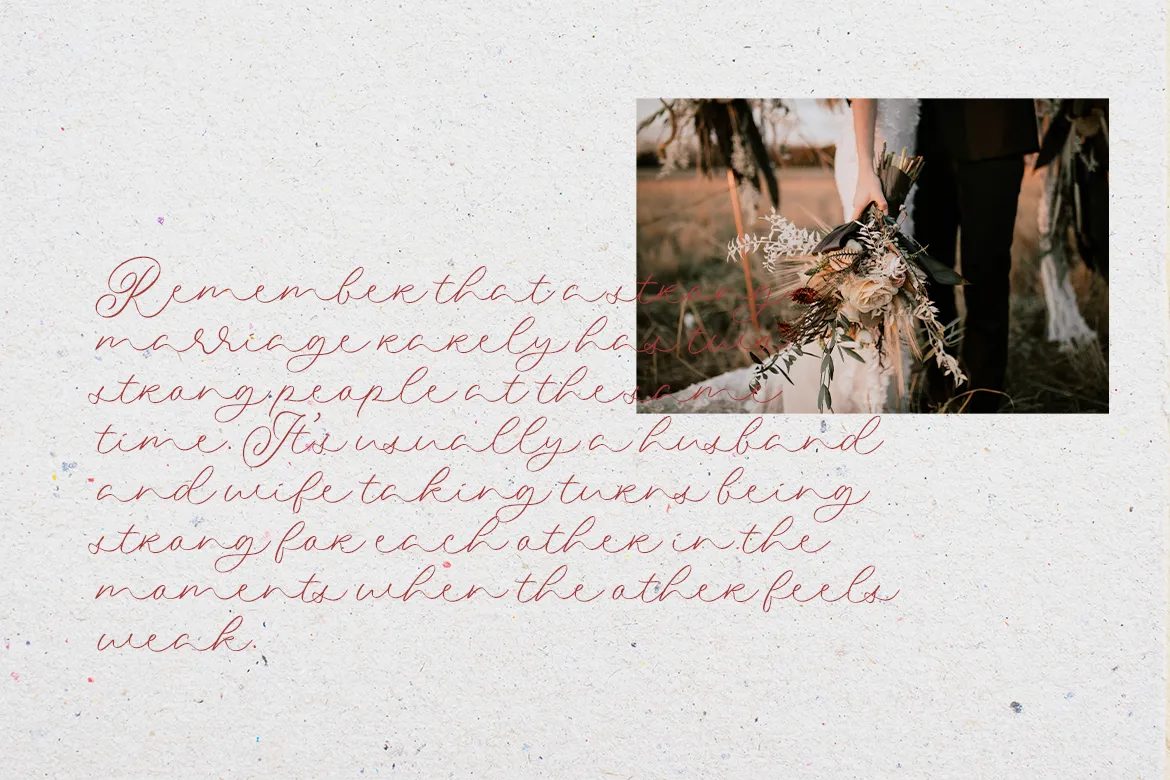 Remember that a strong
marriage rarely has
strong people at the same
time. It's usually a husband
and wife taking turns being
strong for each other in the
moments when the other feels
weak.